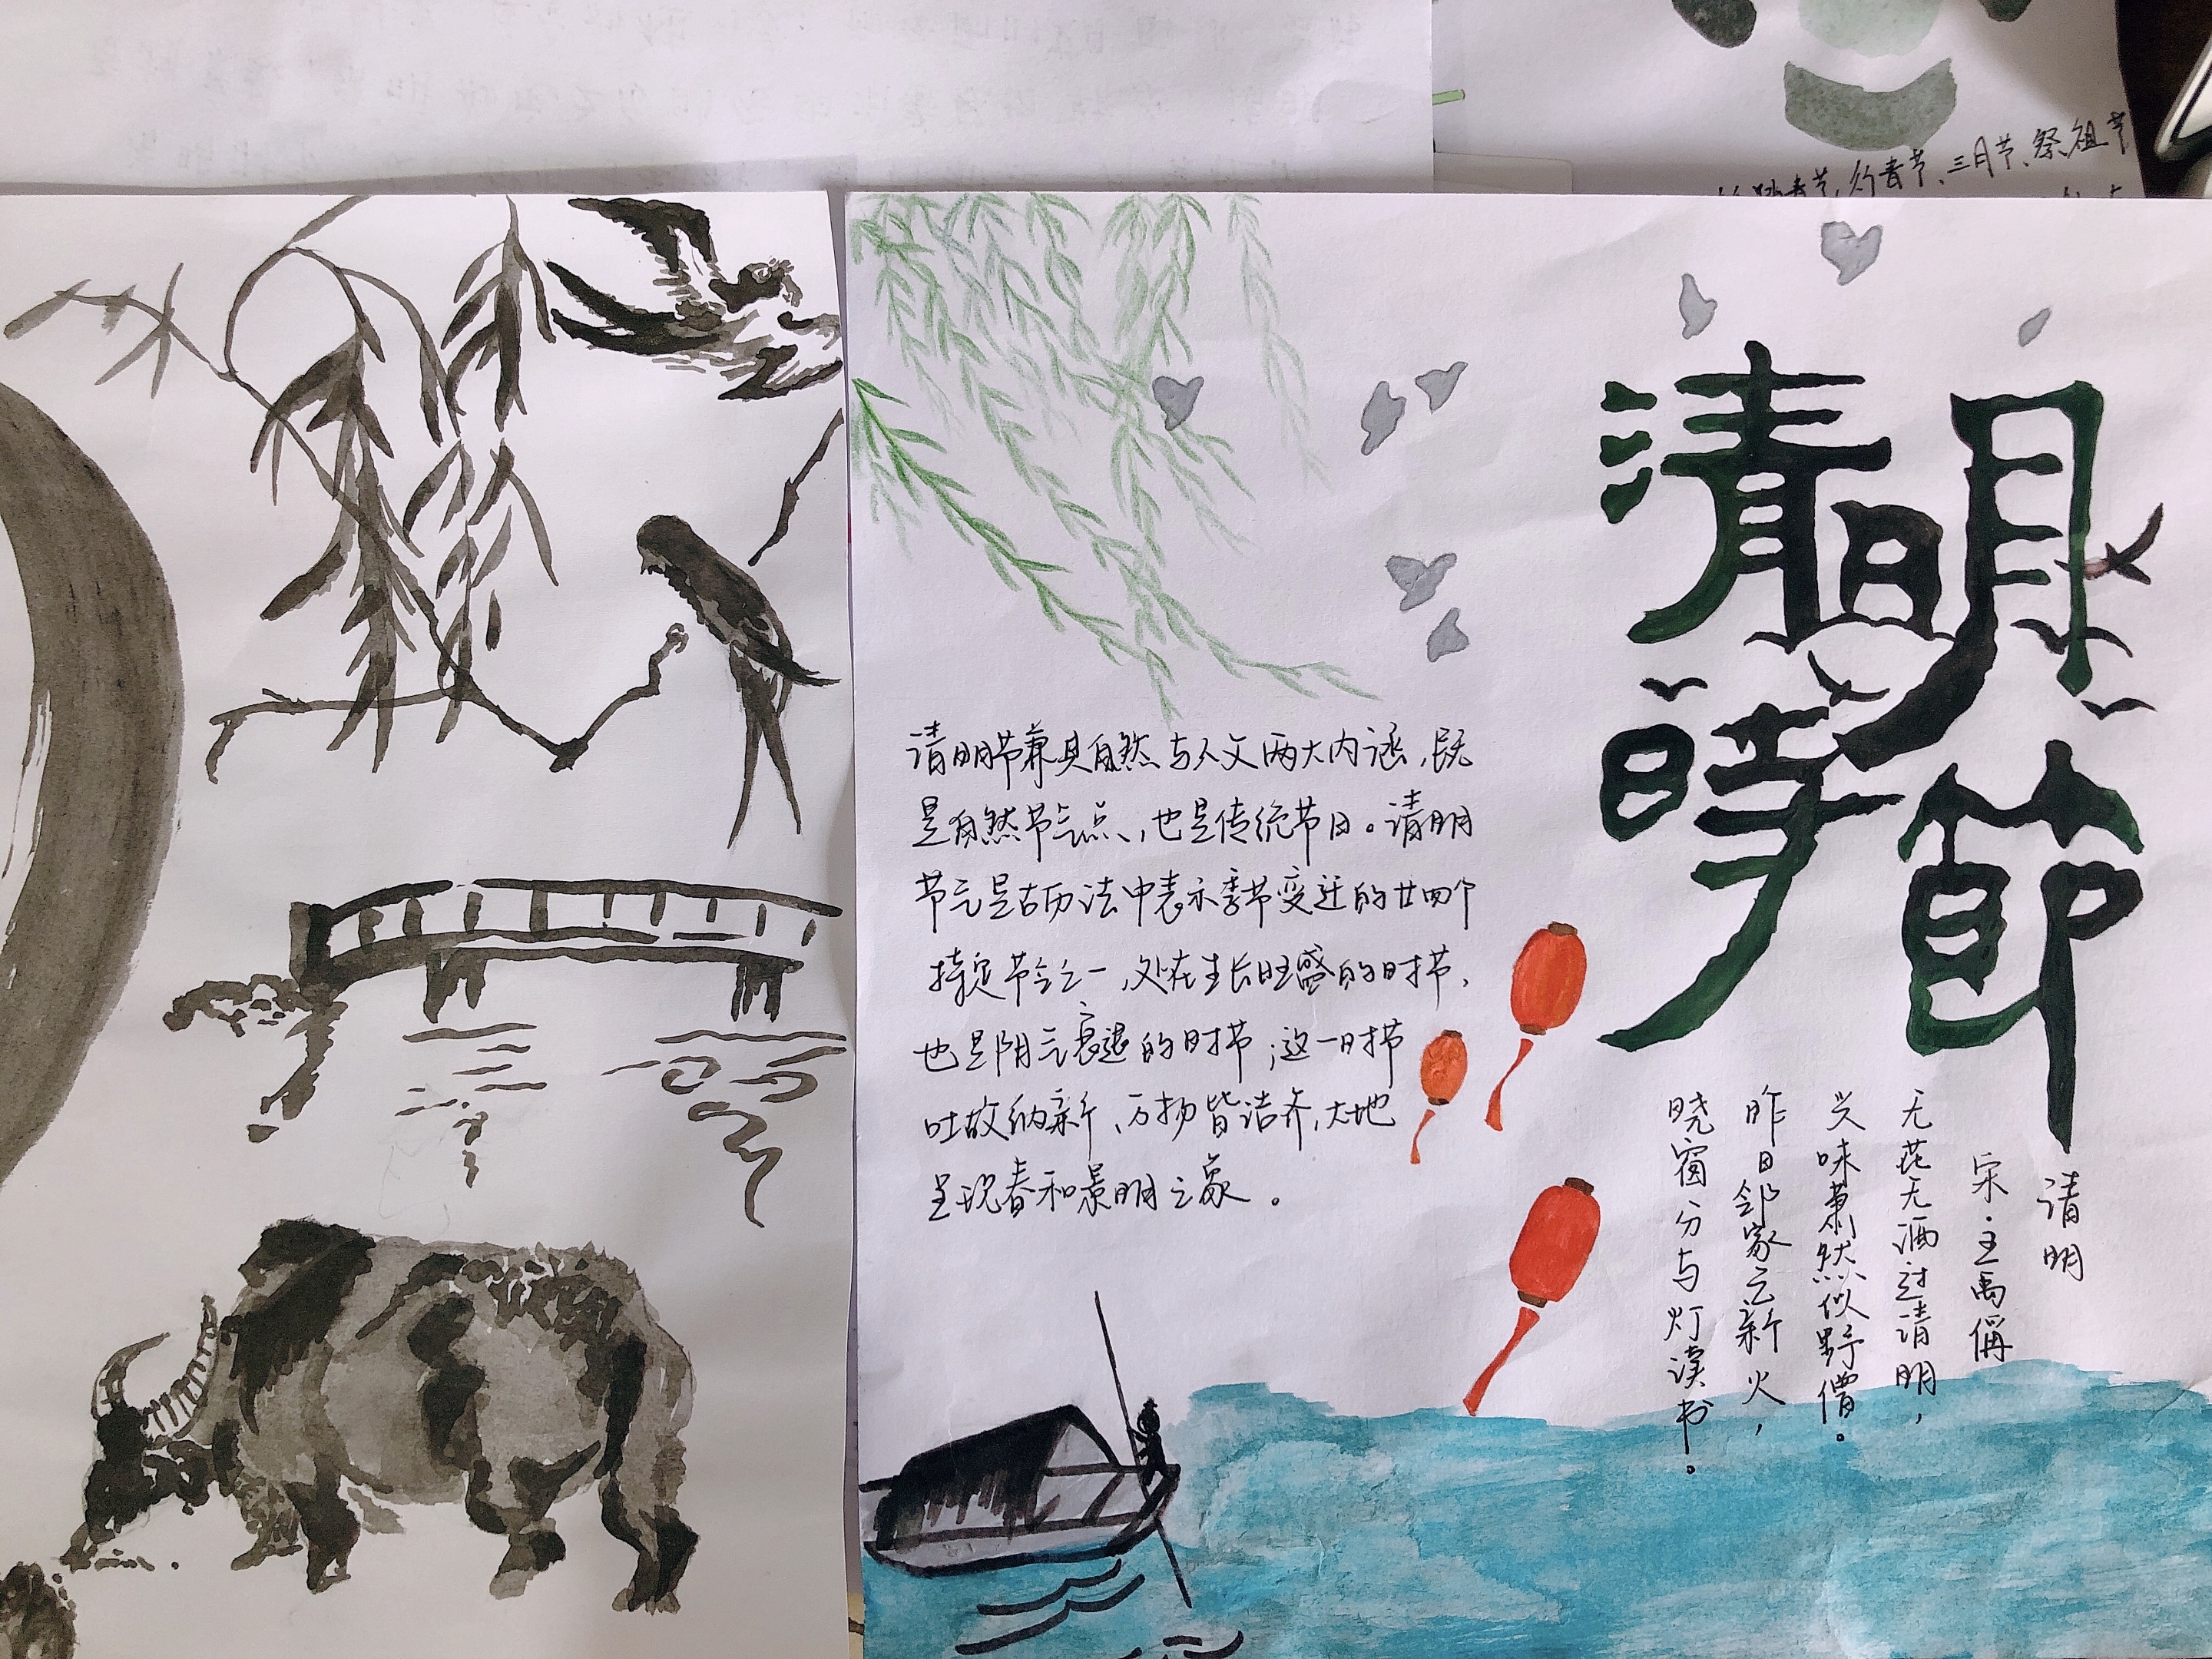 踏青节、行青节、三月节、祭祖节
清明
時節
清明节兼具自然与人文两大内涵,既
是自然节气点,也是传统节日。清明
节气是古历法中表示季节变迁的廿四个
特定节令之一,处在生长旺盛的时节,
也是阴气衰退的时节;这一时节
吐故纳新、万物皆洁齐,大地
呈现春和景明之象。
清明
宋·王禹偁
无花无酒过清明,
兴味萧然似野僧。
昨日邻家乞新火,
晓窗分与灯读书。